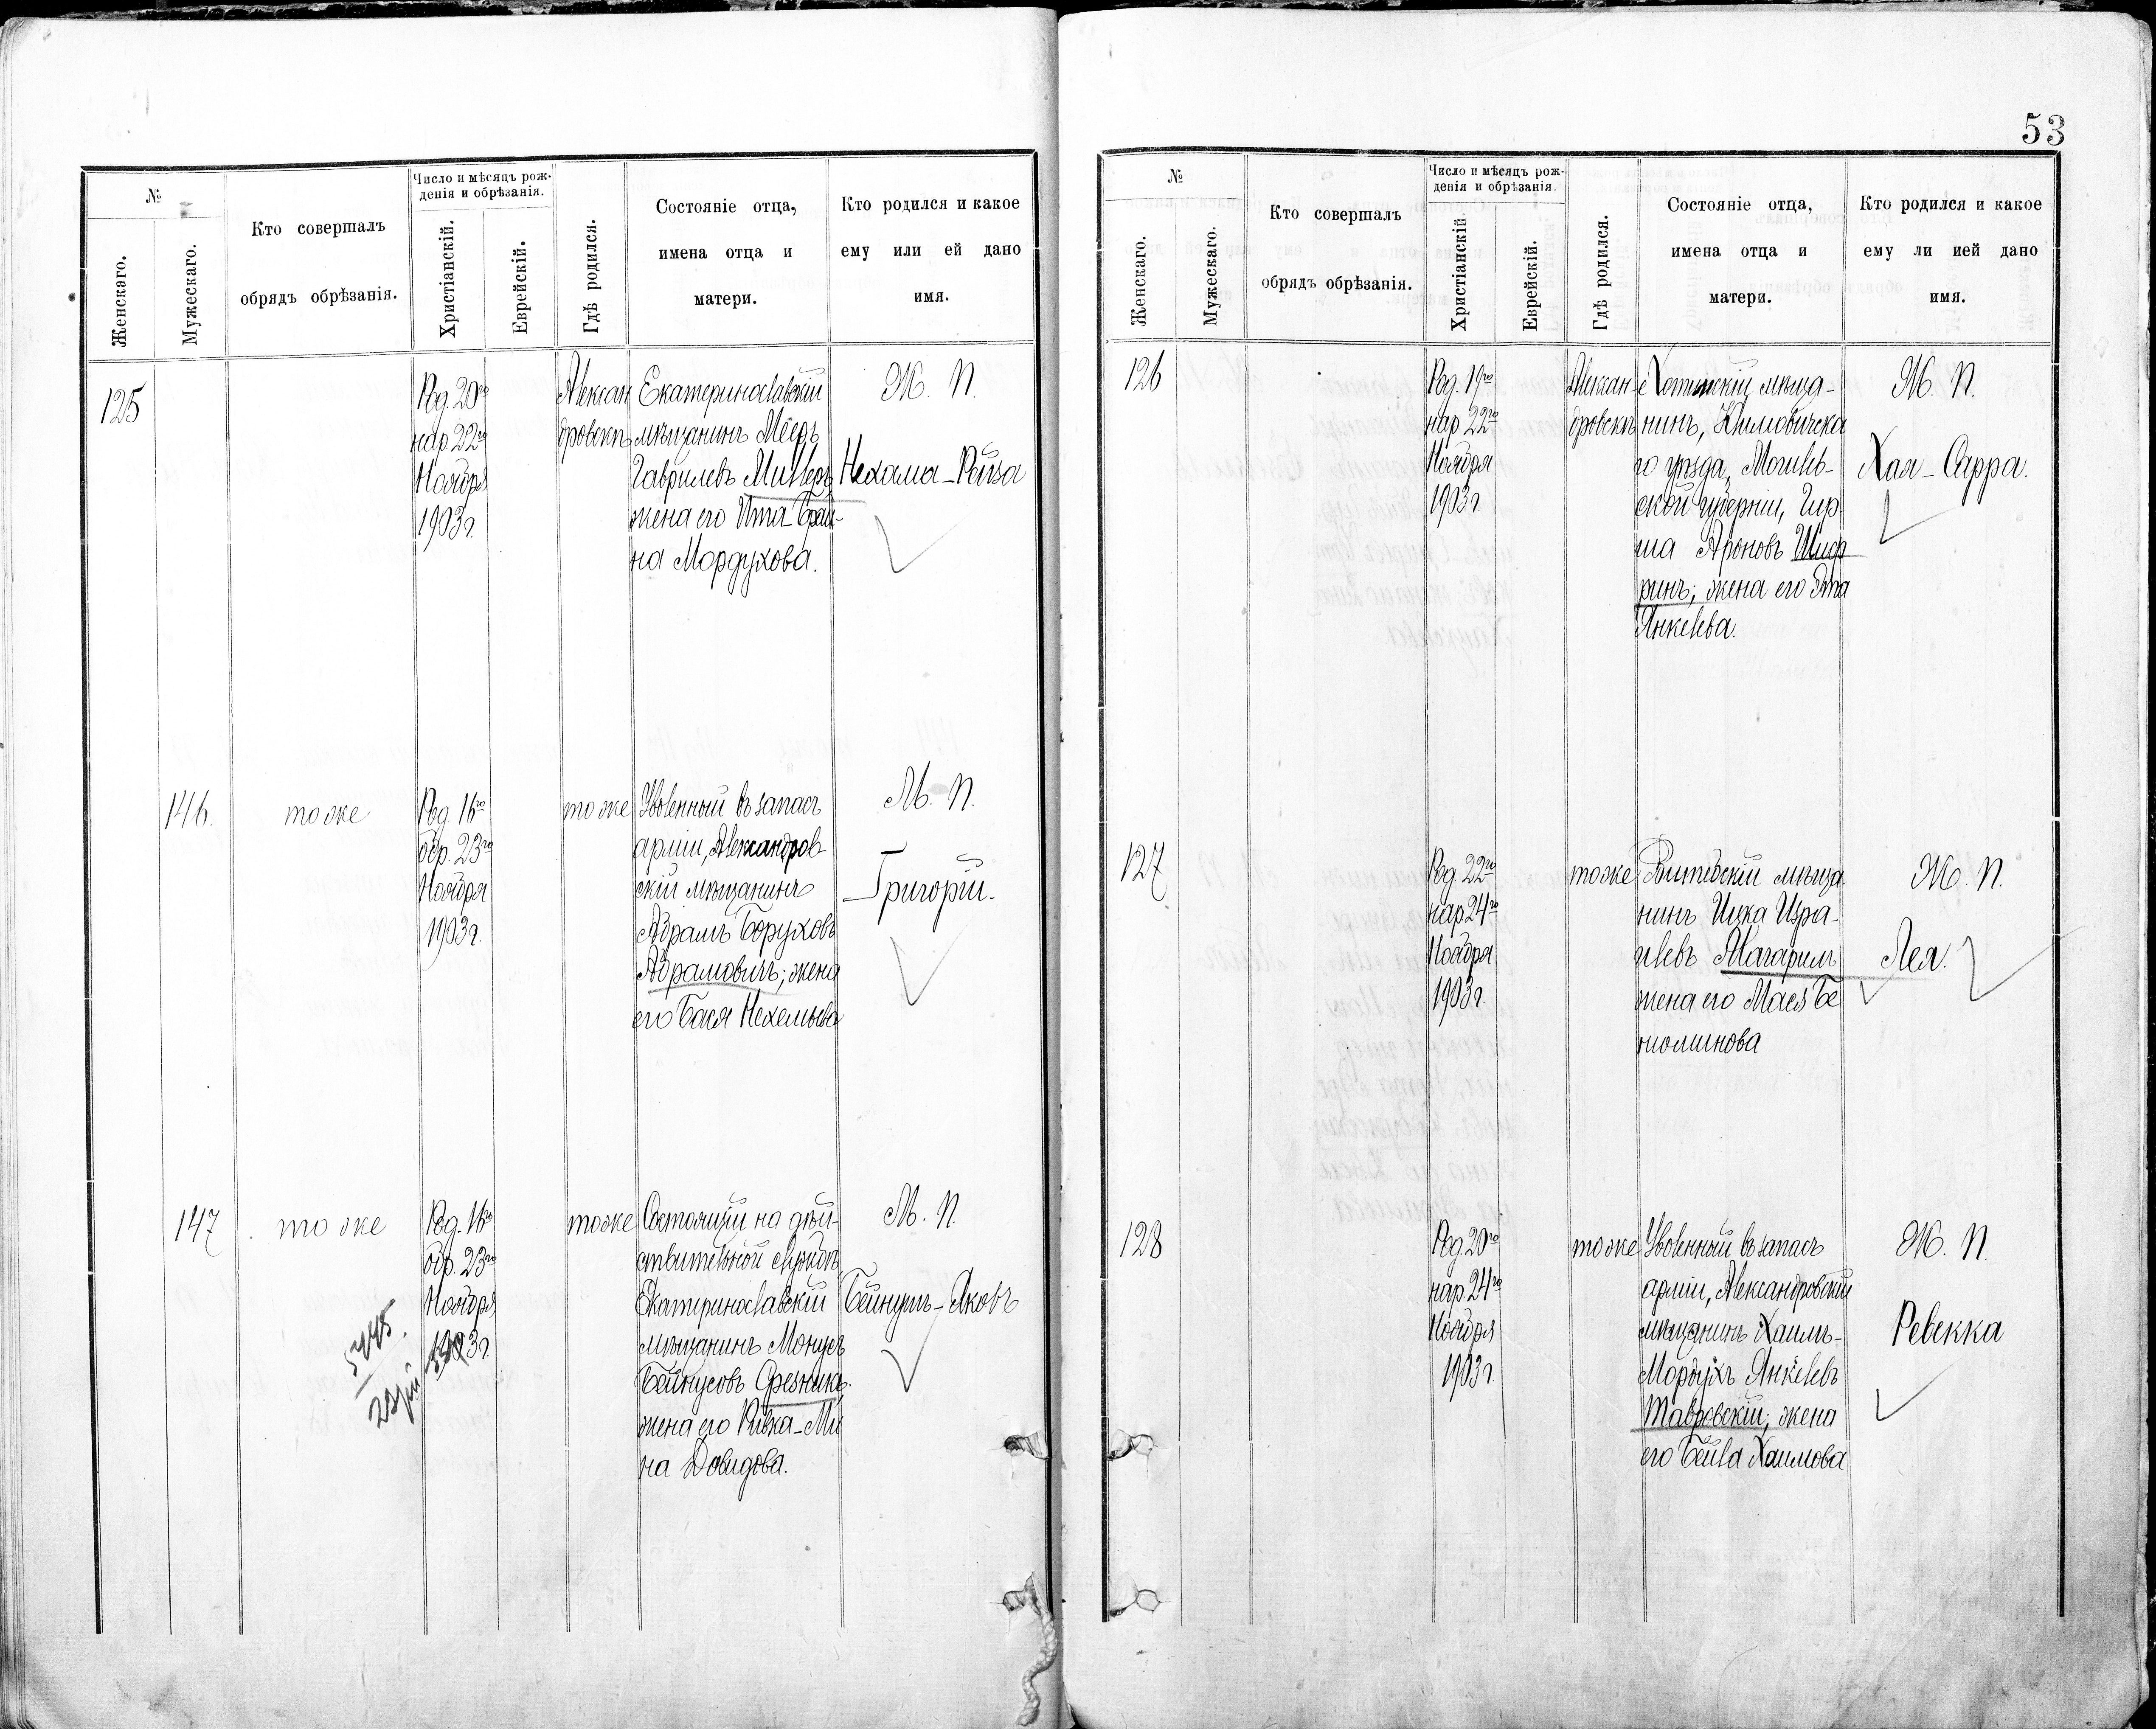 №
Женскаго.
Мужескаго.
Кто совершалъ
обрядъ обрѣзанія.
Число и мѣсяцъ рож-
денія и обрѣзанія.
Христіанскій.
Еврейскій.
Гдѣ родился.
Состояніе отца,
имена отца и
матери.
Кто родился и какое
ему или ей дано
имя.
125
Род. 20го
нар. 22го
Ноября
1903 г.
Алексан
дровскъ
Екатеринославскій
мѣщанинъ Мееръ
Гаврилевъ Миллеръ
жена его Ита-Брай-
на Мордухова.
Ж. П.
Нехама-Рейза
146.
тоже
Род. 16го
обр. 23го
Ноября
1903 г.
тоже
Уволенный въ запасъ
арміи, Александров-
скій мѣщанинъ
Абрамъ Боруховъ
Абрамовичъ; жена
его Бася Нехемьева
М. П.
Григорій.
147
тоже
Род. 16го
обр. 23го
Ноября
1903 г.
тоже
Состоящій на дѣй-
ствительной службѣ,
Екатеринославскій
мѣщанинъ Монусъ
Бейнусовъ Срезникъ
жена его Ривка-Ми
на Довидова.
М. П.
Бейнушъ-Яковъ
53
№
Женскаго.
Мужескаго.
Кто совершалъ
обрядъ обрѣзанія.
Число и мѣсяцъ рож-
денія и обрѣзанія.
Христіанскій.
Еврейскій.
Гдѣ родился.
Состояніе отца,
имена отца и
матери.
Кто родился и какое
ему ли ией дано
имя.
126
Род. 19го
нар. 22го
Ноября
1903 г
Алексан-
дровскъ
Хотимскій мѣща-
нинъ, Климовичска
го уѣзда, Могилев-
ской губерніи, Гир
ша Ароновъ Шиф
ринъ; жена его Эта
Янкелева.
Ж. П.
Хая-Сарра.
127
Род. 22го
нар. 24го
Ноября
1903 г.
тоже
Витебскій мѣща
нинъ Ицка Изра-
илевъ Магарилъ
жена его Мася Бе
нюминова
Ж. П.
Лея.
128
Род. 20го
нар. 24го
Ноября
1903 г
тоже
Уволенный въ запасъ
арміи, Александровскій
мѣщанинъ Хаимъ-
Мордухъ Янкелевъ
Тавровскій; жена
его Бейла Хаимова
Ж. П.
Ревекка